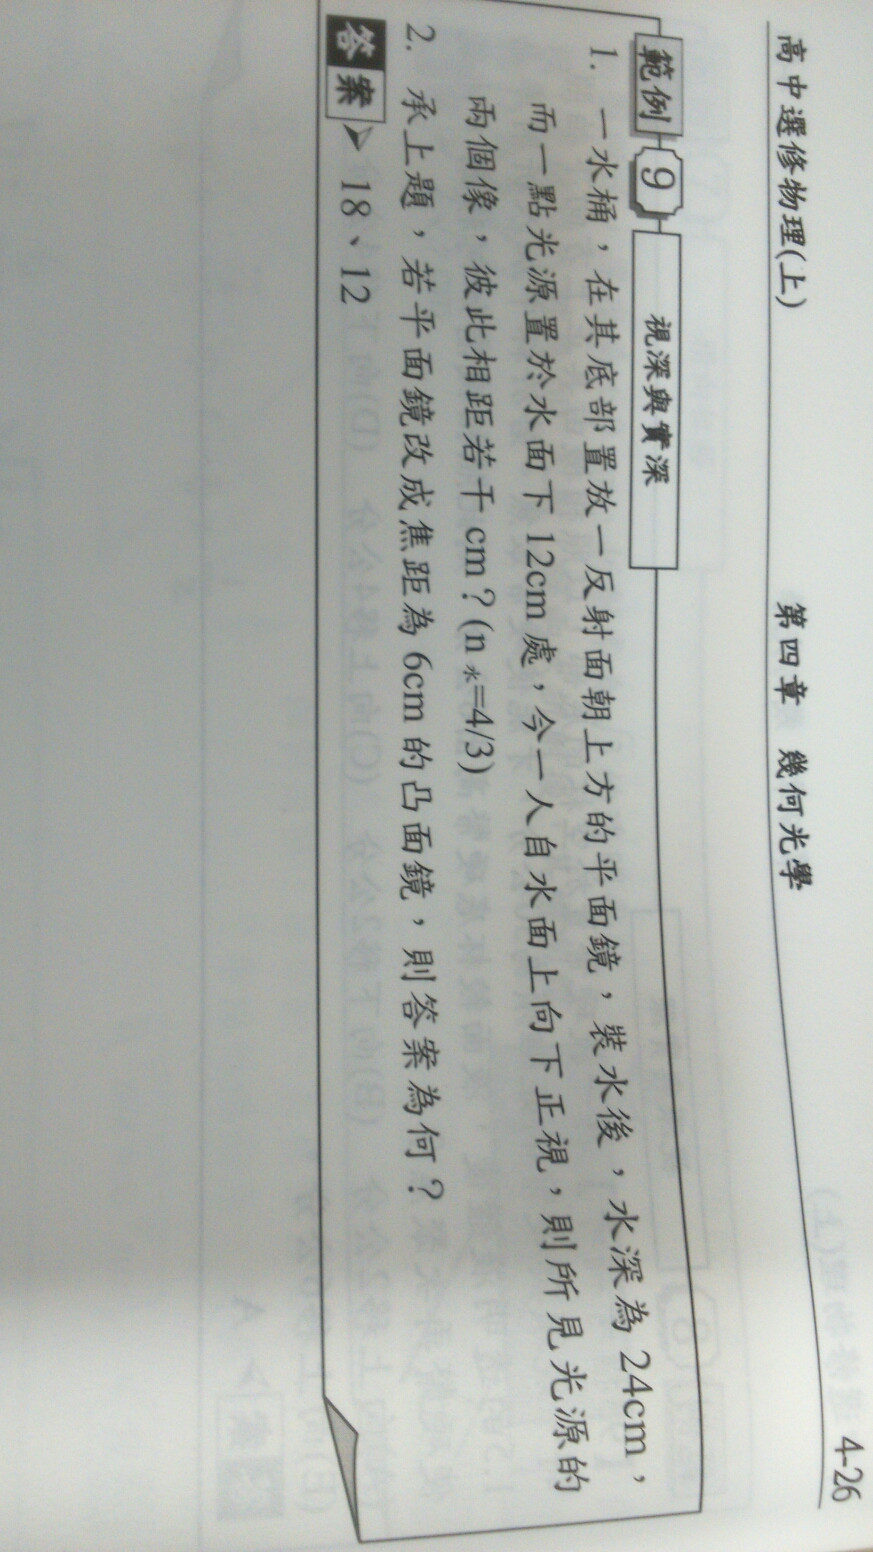 高中選修物理(上) 第四章 幾何光學 4-26
範例 9 視深與實深
1. 一水桶，在其底部置放一反射面朝上方的平面鏡，裝水後，水深為 24cm，
而一點光源置於水面下 12cm 處，今一人自水面上向下正視，則所見光源的
兩個像，彼此相距若干 cm？(n水=4/3)
2. 承上題，若平面鏡改成焦距為 6cm 的凸面鏡，則答案為何？
答案 ➤ 18、12